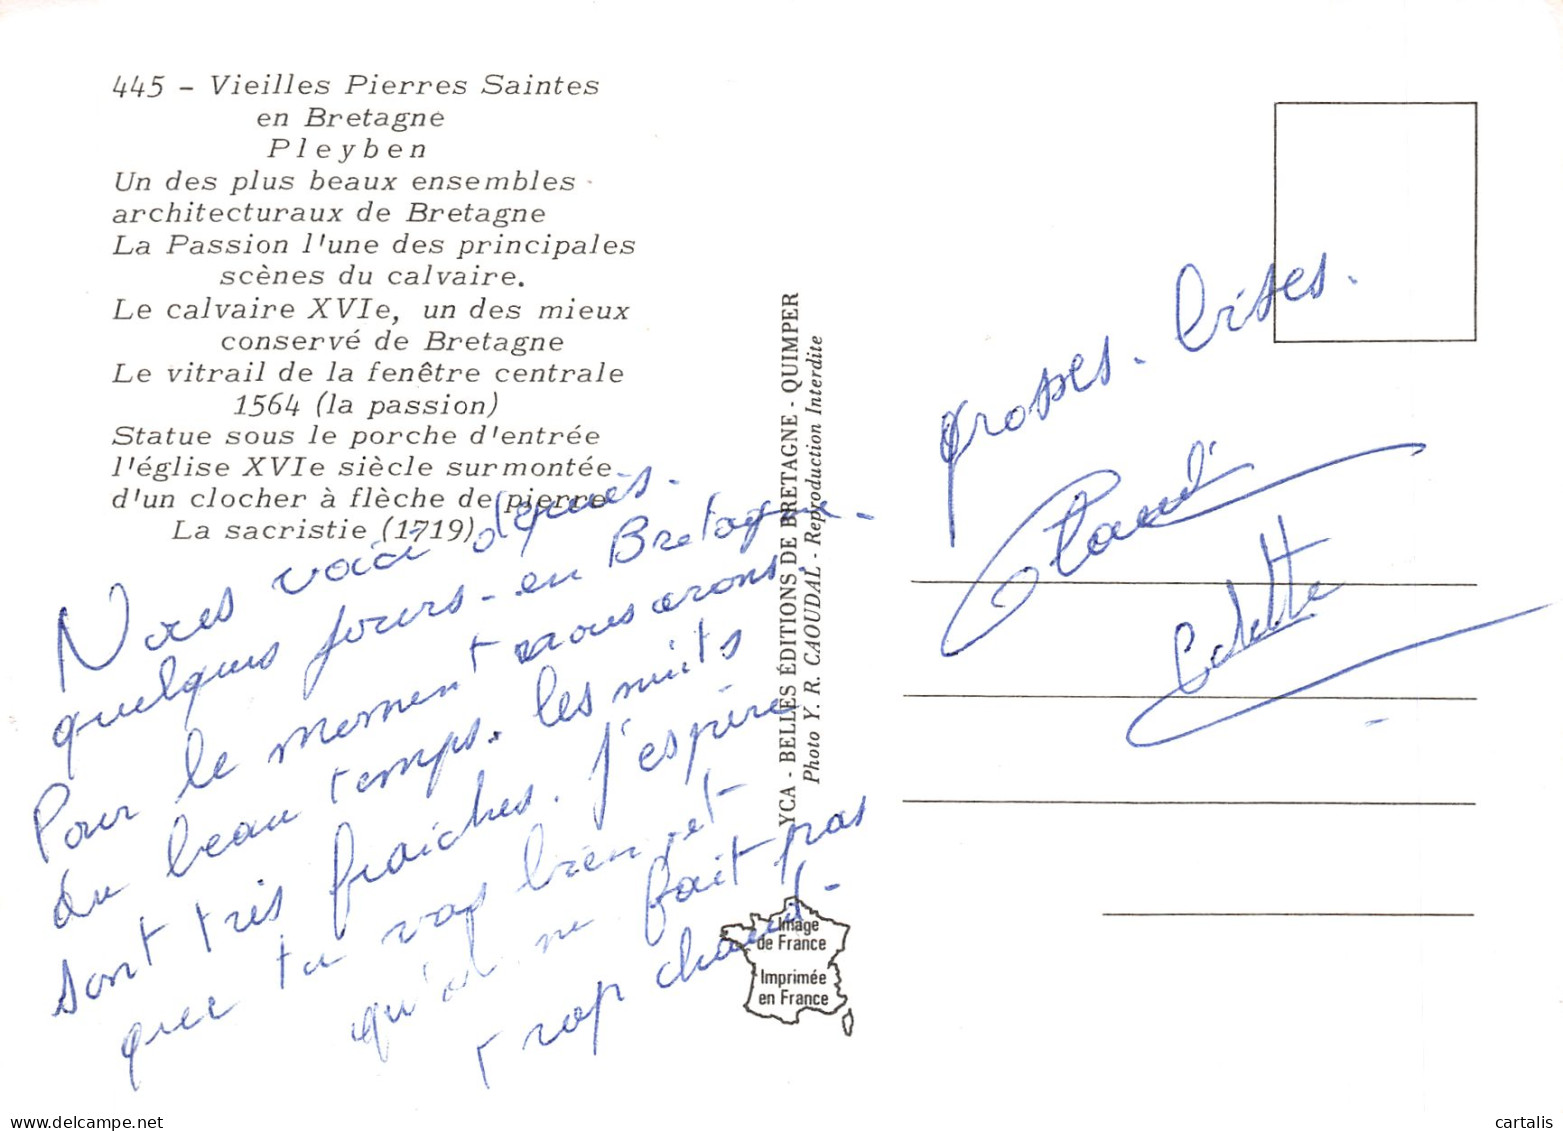 445 - Vieilles Pierres Saintes
en Bretagne
Pleyben
Un des plus beaux ensembles
architecturaux de Bretagne
La Passion l'une des principales
scènes du calvaire.
Le calvaire XVIe, un des mieux
conservé de Bretagne
Le vitrail de la fenêtre centrale
1564 (la passion)
Statue sous le porche d'entrée
l'église XVIe siècle surmontée
d'un clocher à flèche de pierre
La sacristie (1719)
Nous voici depuis
quelques jours - en Bretagne -
Pour le moment nous avons
du beau temps. les nuits
sont très fraiches. J'espère
que tu vas bien et
qu'il ne fait pas
trop chaud -
YCA - BELLES ÉDITIONS DE BRETAGNE - QUIMPER
Photo Y. R. CAOUDAL - Reproduction Interdite
Image
de France
Imprimée
en France
grosses - bises.
Colette
delcampe.net
cartalis